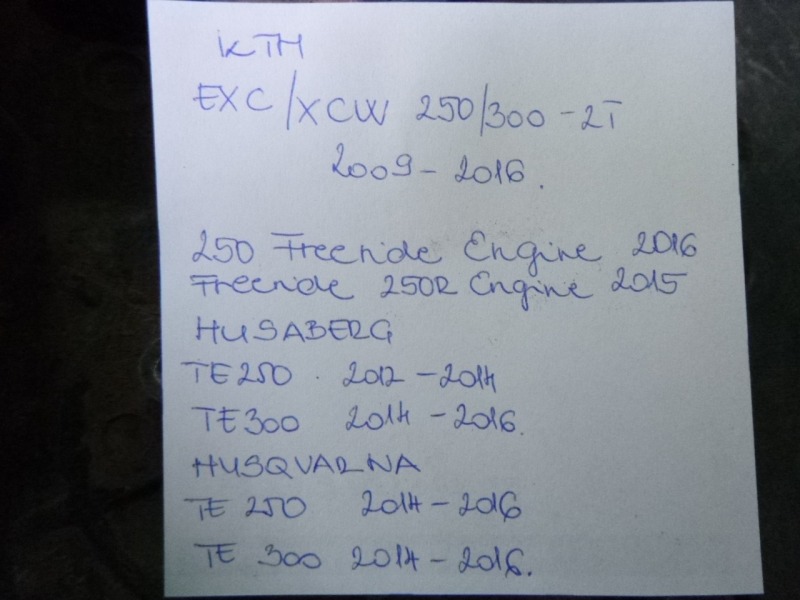 KTM
EXC/XCW 250/300 - 2T
2009 - 2016.
250 Freeride Engine 2016
Freeride 250R Engine 2015
HUSABERG
TE 250 . 2012 - 2014
TE 300 2014 - 2016.
HUSQVARNA
TE 250 2014 - 2016
TE 300 2014 - 2016.